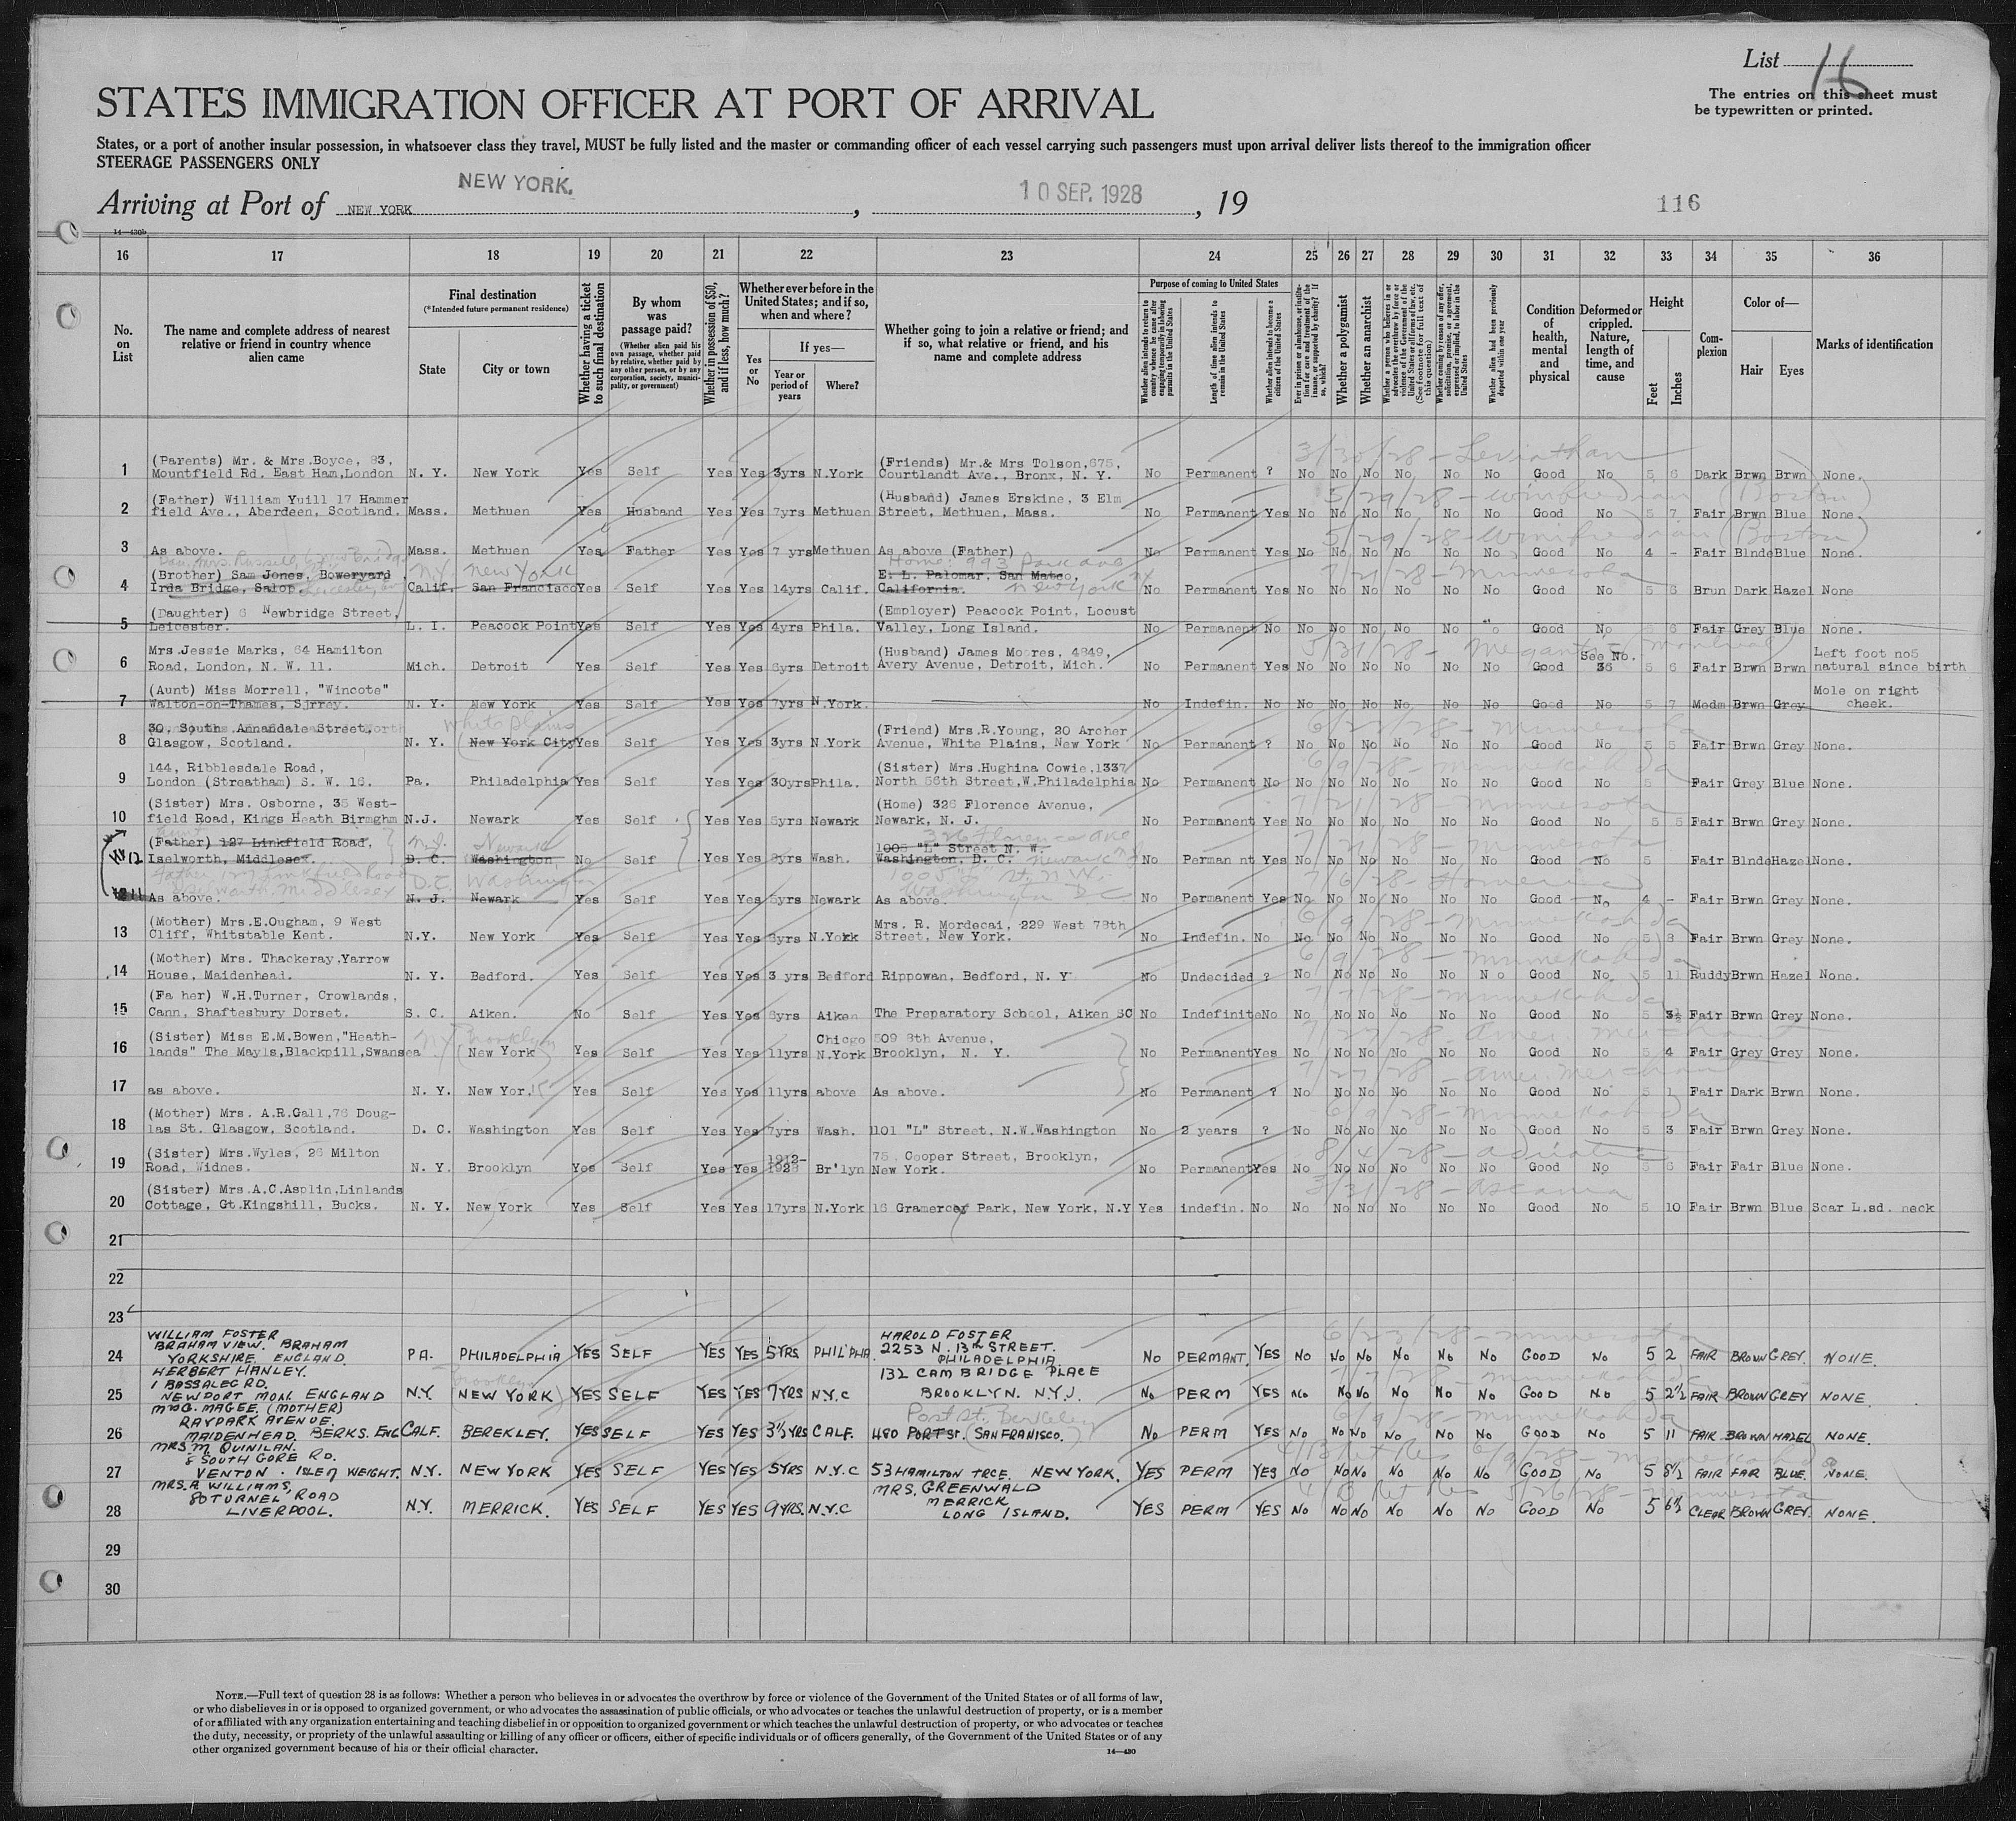 List 16
The entries on this sheet must
be typewritten or printed.
STATES IMMIGRATION OFFICER AT PORT OF ARRIVAL
States, or a port of another insular possession, in whatsoever class they travel, MUST be fully listed and the master or commanding officer of each vessel carrying such passengers must upon arrival deliver lists thereof to the immigration officer
STEERAGE PASSENGERS ONLY
NEW YORK.
Arriving at Port of NEW YORK, 10 SEP. 1928, 19
116
14—430b
16 17 18 19 20 21 22 23 24 25 26 27 28 29 30 31 32 33 34 35 36
No. on List
The name and complete address of nearest relative or friend in country whence alien came
Final destination
(*Intended future permanent residence)
State
City or town
Whether having a ticket to such final destination
By whom was passage paid?
(Whether alien paid his own passage, whether paid by relative, whether paid by any other person, or by any corporation, society, municipality, or government)
Whether in possession of $50, and if less, how much?
Whether ever before in the United States; and if so, when and where?
Yes or No
If yes—
Year or period of years
Where?
Whether going to join a relative or friend; and if so, what relative or friend, and his name and complete address
Purpose of coming to United States
Whether alien intends to return to country whence he came after engaging temporarily in laboring pursuits in the United States
Length of time alien intends to remain in the United States
Whether alien intends to become a citizen of the United States
Ever in prison or almshouse, or institution for care and treatment of the insane, or supported by charity? If so, which?
Whether a polygamist
Whether an anarchist
Whether a person who believes in or advocates the overthrow by force or violence of the Government of the United States or all forms of law, etc. (See footnote for full text of this question)
Whether coming by reason of any offer, solicitation, promise, or agreement, expressed or implied, to labor in the United States
Whether alien had been previously deported within one year
Condition of health, mental and physical
Deformed or crippled. Nature, length of time, and cause
Height
Feet
Inches
Complexion
Color of—
Hair
Eyes
Marks of identification
3/30/28 - Leviathan
1 (Parents) Mr. & Mrs.Boyce, 83, Mountfield Rd. East Ham,London N. Y. New York Yes Self Yes Yes 3yrs N.York (Friends) Mr.& Mrs Tolson,675, Courtlandt Ave., Bronx, N. Y. No Permanent ? No No No No No No Good No 5 6 Dark Brwn Brwn None.
5/29/28 - Winifredian (Boston)
2 (Father) William Yuill 17 Hammerfield Ave., Aberdeen, Scotland. Mass. Methuen Yes Husband Yes Yes 7yrs Methuen (Husband) James Erskine, 3 Elm Street, Methuen, Mass. No Permanent Yes No No No No No No Good No 5 7 Fair Brwn Blue None.
5/29/28 - Winifredian (Boston)
3 As above. Mass. Methuen Yes Father Yes Yes 7 yrs Methuen As above (Father) No Permanent Yes No No No No No No Good No 4 - Fair Blnde Blue None.
N.Y. New York Home: 993 Park Ave New York NY 7/21/28 - Minnesota
4 (Brother) Sam Jones, Boweryard Irda Bridge, Salop. Calif. San Francisco Yes Self Yes Yes 14yrs Calif. E. L. Palomar, San Mateo, California. No Permanent Yes No No No No No No Good No 5 6 Brun Dark Hazel None
5 (Daughter) 6 Newbridge Street, Leicester. L. I. Peacock Point Yes Self Yes Yes 4yrs Phila. (Employer) Peacock Point, Locust Valley, Long Island. No Permanent No No No No No No Good No 5 6 Fair Grey Blue None.
5/31/28 - Megantic - Montreal
6 Mrs.Jessie Marks, 64 Hamilton Road, London, N. W. 11. Mich. Detroit Yes Self Yes Yes 6yrs Detroit (Husband) James Moores, 4849, Avery Avenue, Detroit, Mich. No Permanent Yes No No No No No No Good See No. 36 5 6 Fair Brwn Brwn Left foot no5 natural since birth
7 (Aunt) Miss Morrell, "Wincote" Walton-on-Thames, Surrey. N. Y. New York Yes Self Yes Yes 7yrs N.York. No Indefin. No No No No No No No Good No 5 7 Medm Brwn Grey Mole on right cheek.
White Plains 6/22/28 - Minnesota
8 30, South Annandale Street, Glasgow, Scotland. N. Y. New York City Yes Self Yes Yes 3yrs N.York (Friend) Mrs.R.Young, 20 Archer Avenue, White Plains, New York No Permanent ? No No No No No No Good No 5 5 Fair Brwn Grey None.
6/9/28 - Minnekahda
9 144, Ribblesdale Road, London (Streatham) S. W. 16. Pa. Philadelphia Yes Self Yes Yes 30yrs Phila. (Sister) Mrs.Hughina Cowie,1337 North 56th Street,W.Philadelphia No Permanent No No No No No No No Good No 5 Fair Grey Blue None.
7/21/28 - Minnesota
10 (Sister) Mrs. Osborne, 35 Westfield Road, Kings Heath Birmghm N.J. Newark Yes Self Yes Yes 5yrs Newark (Home) 326 Florence Avenue, Newark, N. J. No Permanent Yes No No No No No No Good No 5 5 Fair Brwn Grey None.
Aunt N.J. Newark 326 Florence Ave Newark NJ 7/21/28 - Minnesota
12 (Father) 127 Linkfield Road, Iselworth, Middlesex. D. C. Washington, No Self Yes Yes 8yrs Wash. 1005 "L" Street N. W. Washington, D. C. No Perman nt Yes No No No No No No Good No 5 Fair Blnde Hazel None.
Father, 127 Linkfield Road Iselworth, Middlesex D.C. Washington 1005 "L" St. N.W. Washington DC 7/6/28 - Homeric
11 As above. N. J. Newark Yes Self Yes Yes 5yrs Newark As above. No Permanent Yes No No No No No No Good No 4 - Fair Brwn Grey None.
6/9/28 - Minnekahda
13 (Mother) Mrs.E.Ougham, 9 West Cliff, Whitstable Kent. N.Y. New York Yes Self Yes Yes 8yrs N.York Mrs. R. Mordecai, 229 West 78th Street, New York. No Indefin. No No No No No No No Good No 5 8 Fair Brwn Grey None.
6/9/28 - Minnekahda
14 (Mother) Mrs. Thackeray,Yarrow House, Maidenhead. N. Y. Bedford. Yes Self Yes Yes 3 yrs Bedford Rippowan, Bedford, N. Y No Undecided ? No No No No No No Good No 5 11 Ruddy Brwn Hazel None.
7/7/28 - Minnekahda
15 (Fa her) W.H.Turner, Crowlands, Cann, Shaftesbury Dorset. S. C. Aiken. No Self Yes Yes 6yrs Aiken The Preparatory School, Aiken SC No Indefinite No No No No No No No Good No 5 3½ Fair Brwn Grey None.
N.Y. Brooklyn 7/27/28 - Amer. Merchant
16 (Sister) Miss E.M.Bowen,"Heathlands" The Mayls,Blackpill,Swansea (New York) Yes Self Yes Yes 11yrs Chicgo N.York 509 8th Avenue, Brooklyn, N. Y. No Permanent Yes No No No No No No Good No 5 4 Fair Grey Grey None.
7/27/28 - Amer. Merchant
17 as above. N. Y. New York Yes Self Yes Yes 11yrs above As above. No Permanent ? No No No No No No Good No 5 1 Fair Dark Brwn None.
6/9/28 - Minnekahda
18 (Mother) Mrs. A.R.Gall,76 Douglas St. Glasgow, Scotland. D. C. Washington Yes Self Yes Yes 7yrs Wash. 1101 "L" Street, N.W.Washington No 2 years ? No No No No No No Good No 5 3 Fair Brwn Grey None.
8/4/28 - Adriatic
19 (Sister) Mrs.Wyles, 26 Milton Road, Widnes. N. Y. Brooklyn Yes Self Yes Yes 1912-1928 Br'lyn 75, Cooper Street, Brooklyn, New York. No Permanent Yes No No No No No No Good No 5 6 Fair Fair Blue None.
3/31/28 - Ascania
20 (Sister) Mrs.A.C.Asplin,Linlands Cottage, Gt.Kingshill, Bucks. N. Y. New York Yes Self Yes Yes 17yrs N.York 16 Gramercy Park, New York, N.Y Yes indefin. No No No No No No No Good No 5 10 Fair Brwn Blue Scar L.sd. neck
21
22
23
6/23/28 - Minnesota
24 WILLIAM FOSTER BRAHAM VIEW. BRAHAM YORKSHIRE. ENGLAND. PA. PHILADELPHIA YES SELF YES YES 5YRS PHIL'PHA HAROLD FOSTER 2253 N. 13TH STREET. PHILADELPHIA NO PERMANT. YES NO NO NO NO NO NO GOOD NO 5 2 FAIR BROWN GREY. NONE.
Brooklyn 7/7/28 - Minnekahda
25 HERBERT HANLEY. 1 BASSALEG RD. NEWPORT MON. ENGLAND N.Y. (NEW YORK) YES SELF YES YES 7YRS N.Y.C 132 CAMBRIDGE PLACE BROOKLYN. N.Y.J. NO PERM YES NO NO NO NO NO NO GOOD NO 5 2½ FAIR BROWN GREY NONE
Post St. Berkeley 6/9/28 - Minnekahda
26 MRS G. MAGEE (MOTHER) RAYPARK AVENUE. MAIDENHEAD. BERKS. ENG CALF. BEREKLEY. YES SELF YES YES 3½YRS CALF. 1480 PORT ST. (SAN FRANISCO.) NO PERM YES NO NO NO NO NO NO GOOD NO 5 11 FAIR BROWN HAZEL NONE.
4/13 Ret Res 6/9/28 - Minnekahda
27 MRS M. QUINILAN. 8 SOUTH GORE RD. VENTON. ISLE OF WEIGHT. N.Y. NEW YORK YES SELF YES YES 5YRS N.Y.C 53 HAMILTON TRCE. NEW YORK. YES PERM YES NO NO NO NO NO NO GOOD NO 5 8½ FAIR FAR BLUE. NONE.
Ret Res 5/26/28 - Minnesota
28 MRS. A WILLIAMS, 80 TURNEL ROAD LIVERPOOL. N.Y. MERRICK. YES SELF YES YES 9YRS. N.Y.C MRS. GREENWALD MERRICK LONG ISLAND. YES PERM YES NO NO NO NO NO NO GOOD NO 5 6½ CLEAR BROWN GREY. NONE.
29
30
NOTE.—Full text of question 28 is as follows: Whether a person who believes in or advocates the overthrow by force or violence of the Government of the United States or of all forms of law,
or who disbelieves in or is opposed to organized government, or who advocates the assassination of public officials, or who advocates or teaches the unlawful destruction of property, or is a member
of or affiliated with any organization entertaining and teaching disbelief in or opposition to organized government or which teaches the unlawful destruction of property, or who advocates or teaches
the duty, necessity, or propriety of the unlawful assaulting or killing of any officer or officers, either of specific individuals or of officers generally, of the Government of the United States or of any
other organized government because of his or their official character.
14—430